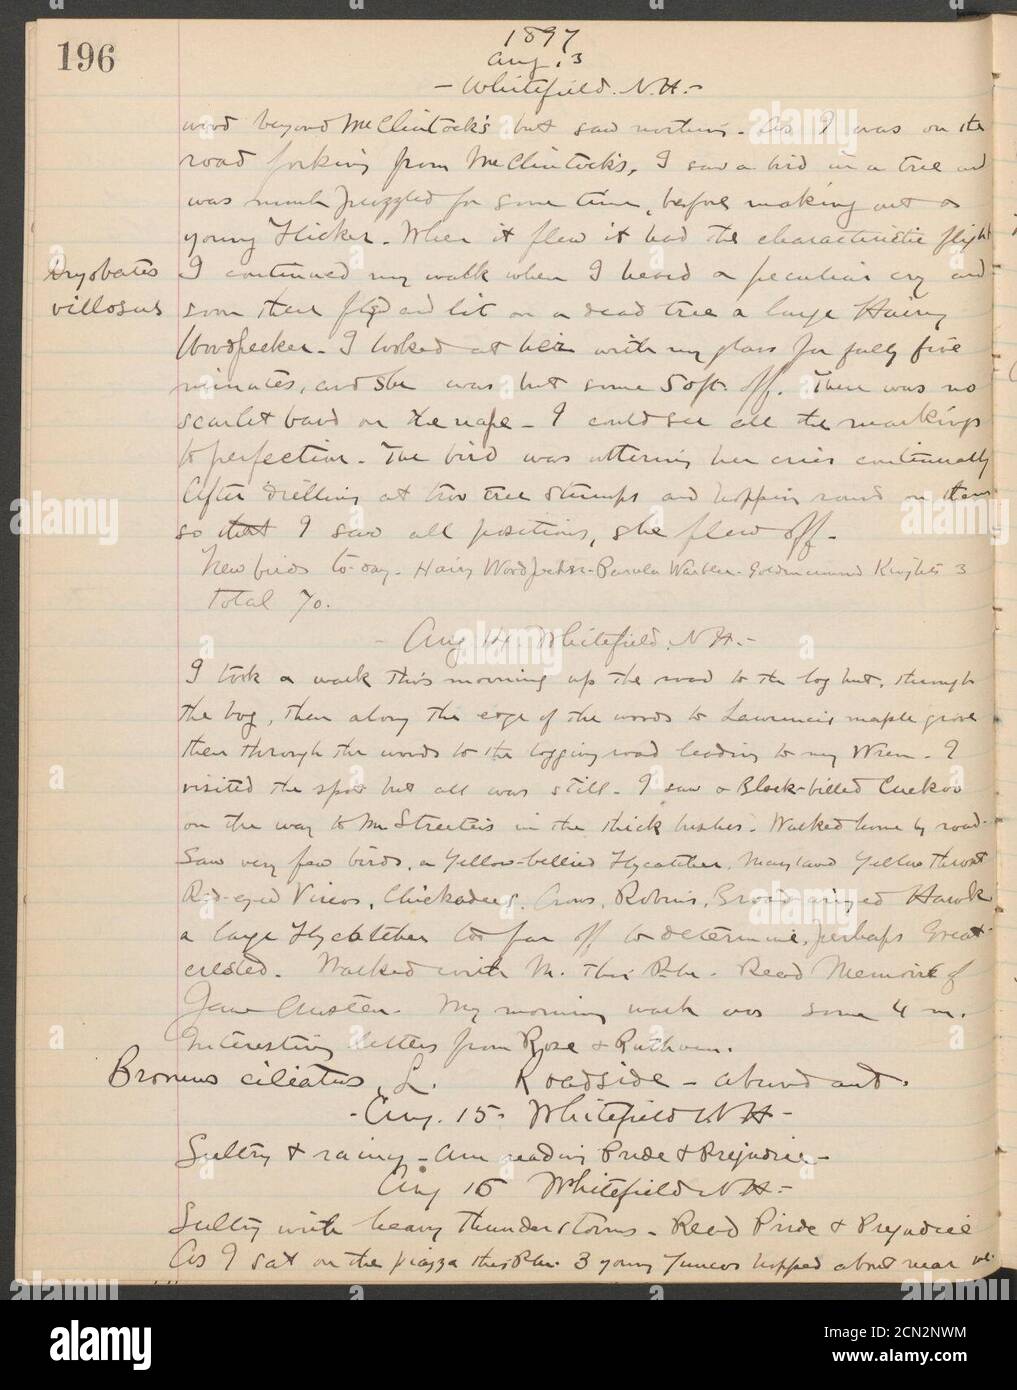 196
1897
Aug. 3
- Whitefield. N.H. -
wood beyond McClintock's but saw nothing. As I was on the
road forking from McClintock's, I saw a bird in a tree and
was much puzzled for some time, before making out a
young Flicker. When it flew it had the characteristic flight
Dryobates
villosus
I continued my walk when I heard a peculiar cry and
soon there and lit on a dead tree a large Hairy
Woodpecker. I looked at her with my glass for fully five
minutes, and she was but some 50 ft. off. There was no
scarlet band on the nape - I could see all the markings
to perfection. The bird was uttering her cries continually
After drilling at two tree stumps and hopping round on them
so that I saw all positions, she flew off.
New birds to-day. Hairy Woodpecker - Parula Warbler - Golden crowned 3
Total 70.
- Aug 14. Whitefield. N.H. -
I took a walk this morning up the road to the log hut, through
the bog, then along the edge of the woods to Lawrence's maple grove
then through the woods to the logging road leading to my Wren. I
visited the spot but all was still. I saw a Black-billed Cuckoo
on the way to Mr. Streeter's in the thick bushes. Walked home by road.
Saw very few birds, a Yellow-bellied Flycatcher, Maryland Yellow throat
Red-eyed Vireos, Chickadees, Crows, Robins, Broad-winged Hawk
a large Flycatcher too far off to determine, perhaps Great-
crested. Walked with M. this P.M. Read Memoirs of
Jane Austen. My morning walk was some 4 m.
Interesting letters from Rose & Ruthven.
Bromus ciliatus, L. Roadside - abundant.
- Aug. 15. Whitefield N.H. -
Sultry & rainy - Am reading Pride & Prejudice -
Aug 16 Whitefield N.H. -
Sultry with heavy thunder storms - Read Pride & Prejudice
As I sat on the piazza this P.M. 3 young Juncos hopped about near
alamy
alamy
alamy
alamy
alamy
alamy
alamy
Image ID: 2CN2NWM
www.alamy.com